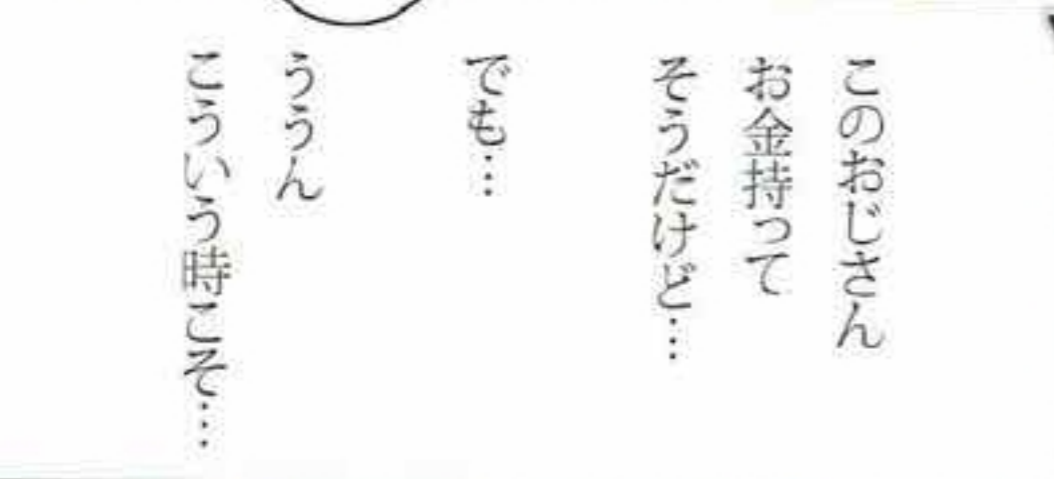 このおじさん
お金持って
そうだけど…
でも…
ううん
こういう時こそ…